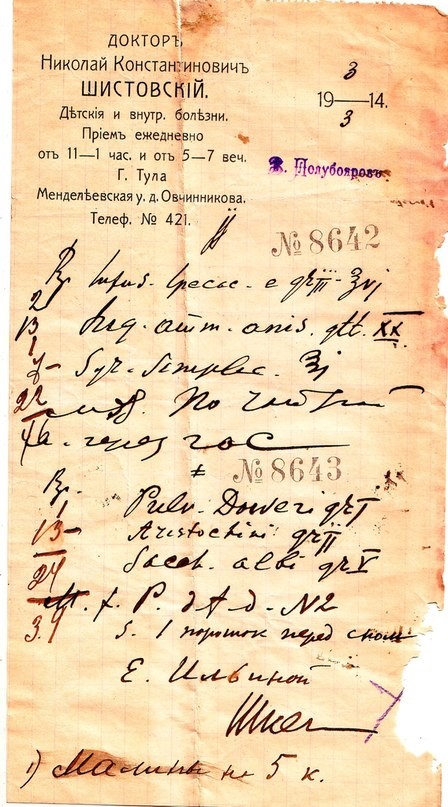 ДОКТОРЪ
Николай Константиновичъ
ШИСТОВСКІЙ.
Дѣтскія и внутр. болѣзни.
Пріемъ ежедневно
отъ 11—1 час. и отъ 5—7 веч.
Г. Тула
Менделѣевская у. д. Овчинникова.
Телеф. № 421.
3
19—14.
3
В. Полубояровъ
№ 8642
Rp. Infus. Ipecac. e gr
Liq. amm. anis. gtt. XX
Syr. Simplic. ʒj
По
через час
№ 8643
Rp.
Pulv. Doweri gr I
Aristochini gr II
Sacch. albi gr V
M. f. P. d t d. N2
S. 1 порошок перед сном
Е. Ильиной
1) Малины на 5 к.